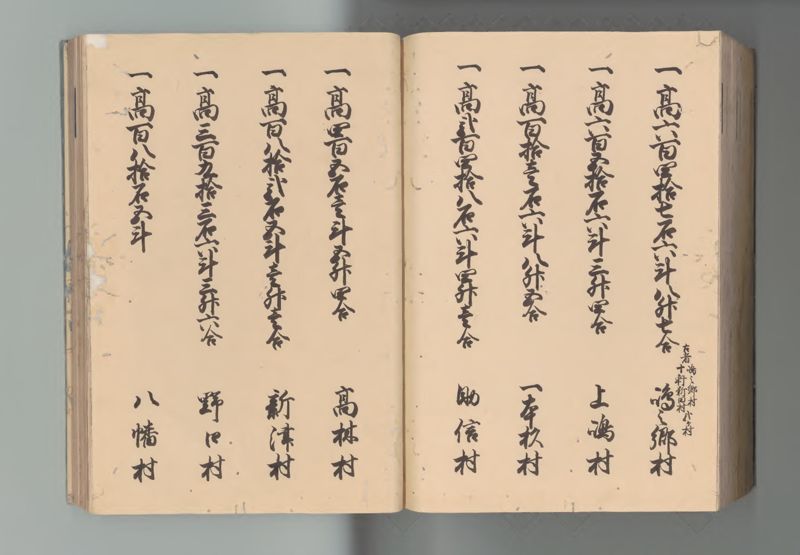 一高六百四拾七石六斗八升七合 嶋之郷村
古者嶋之郷村
十軒新田村 弐ケ村
一高六百五拾石六斗三升四合 上嶋村
一高百拾壱石六斗八升五合 一本杦村
一高弐百四拾八石六斗四升壱合 助信村
一高四百五石壱斗五升四合 高林村
一高百八拾弐石五斗壱升壱合 新津村
一高三百九拾三石六斗三升六合 野口村
一高百八拾石五斗 八幡村